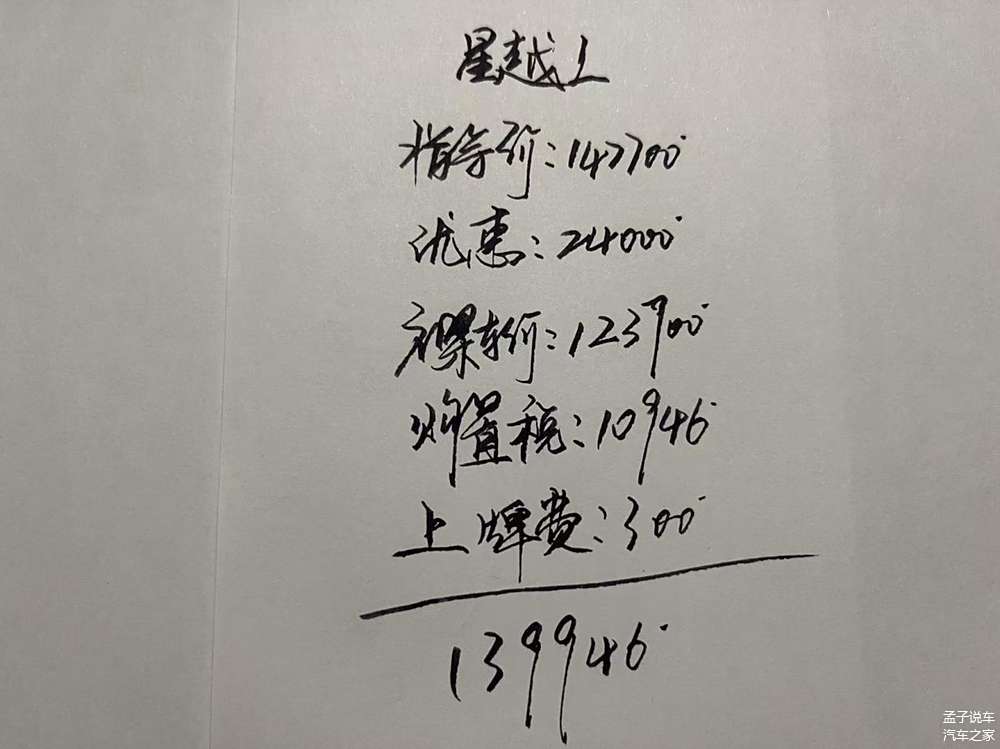 星越L
指导价:147700
优惠:24000
裸车价:123700
购置税:10946
上牌费:300
139946
孟子说车
汽车之家